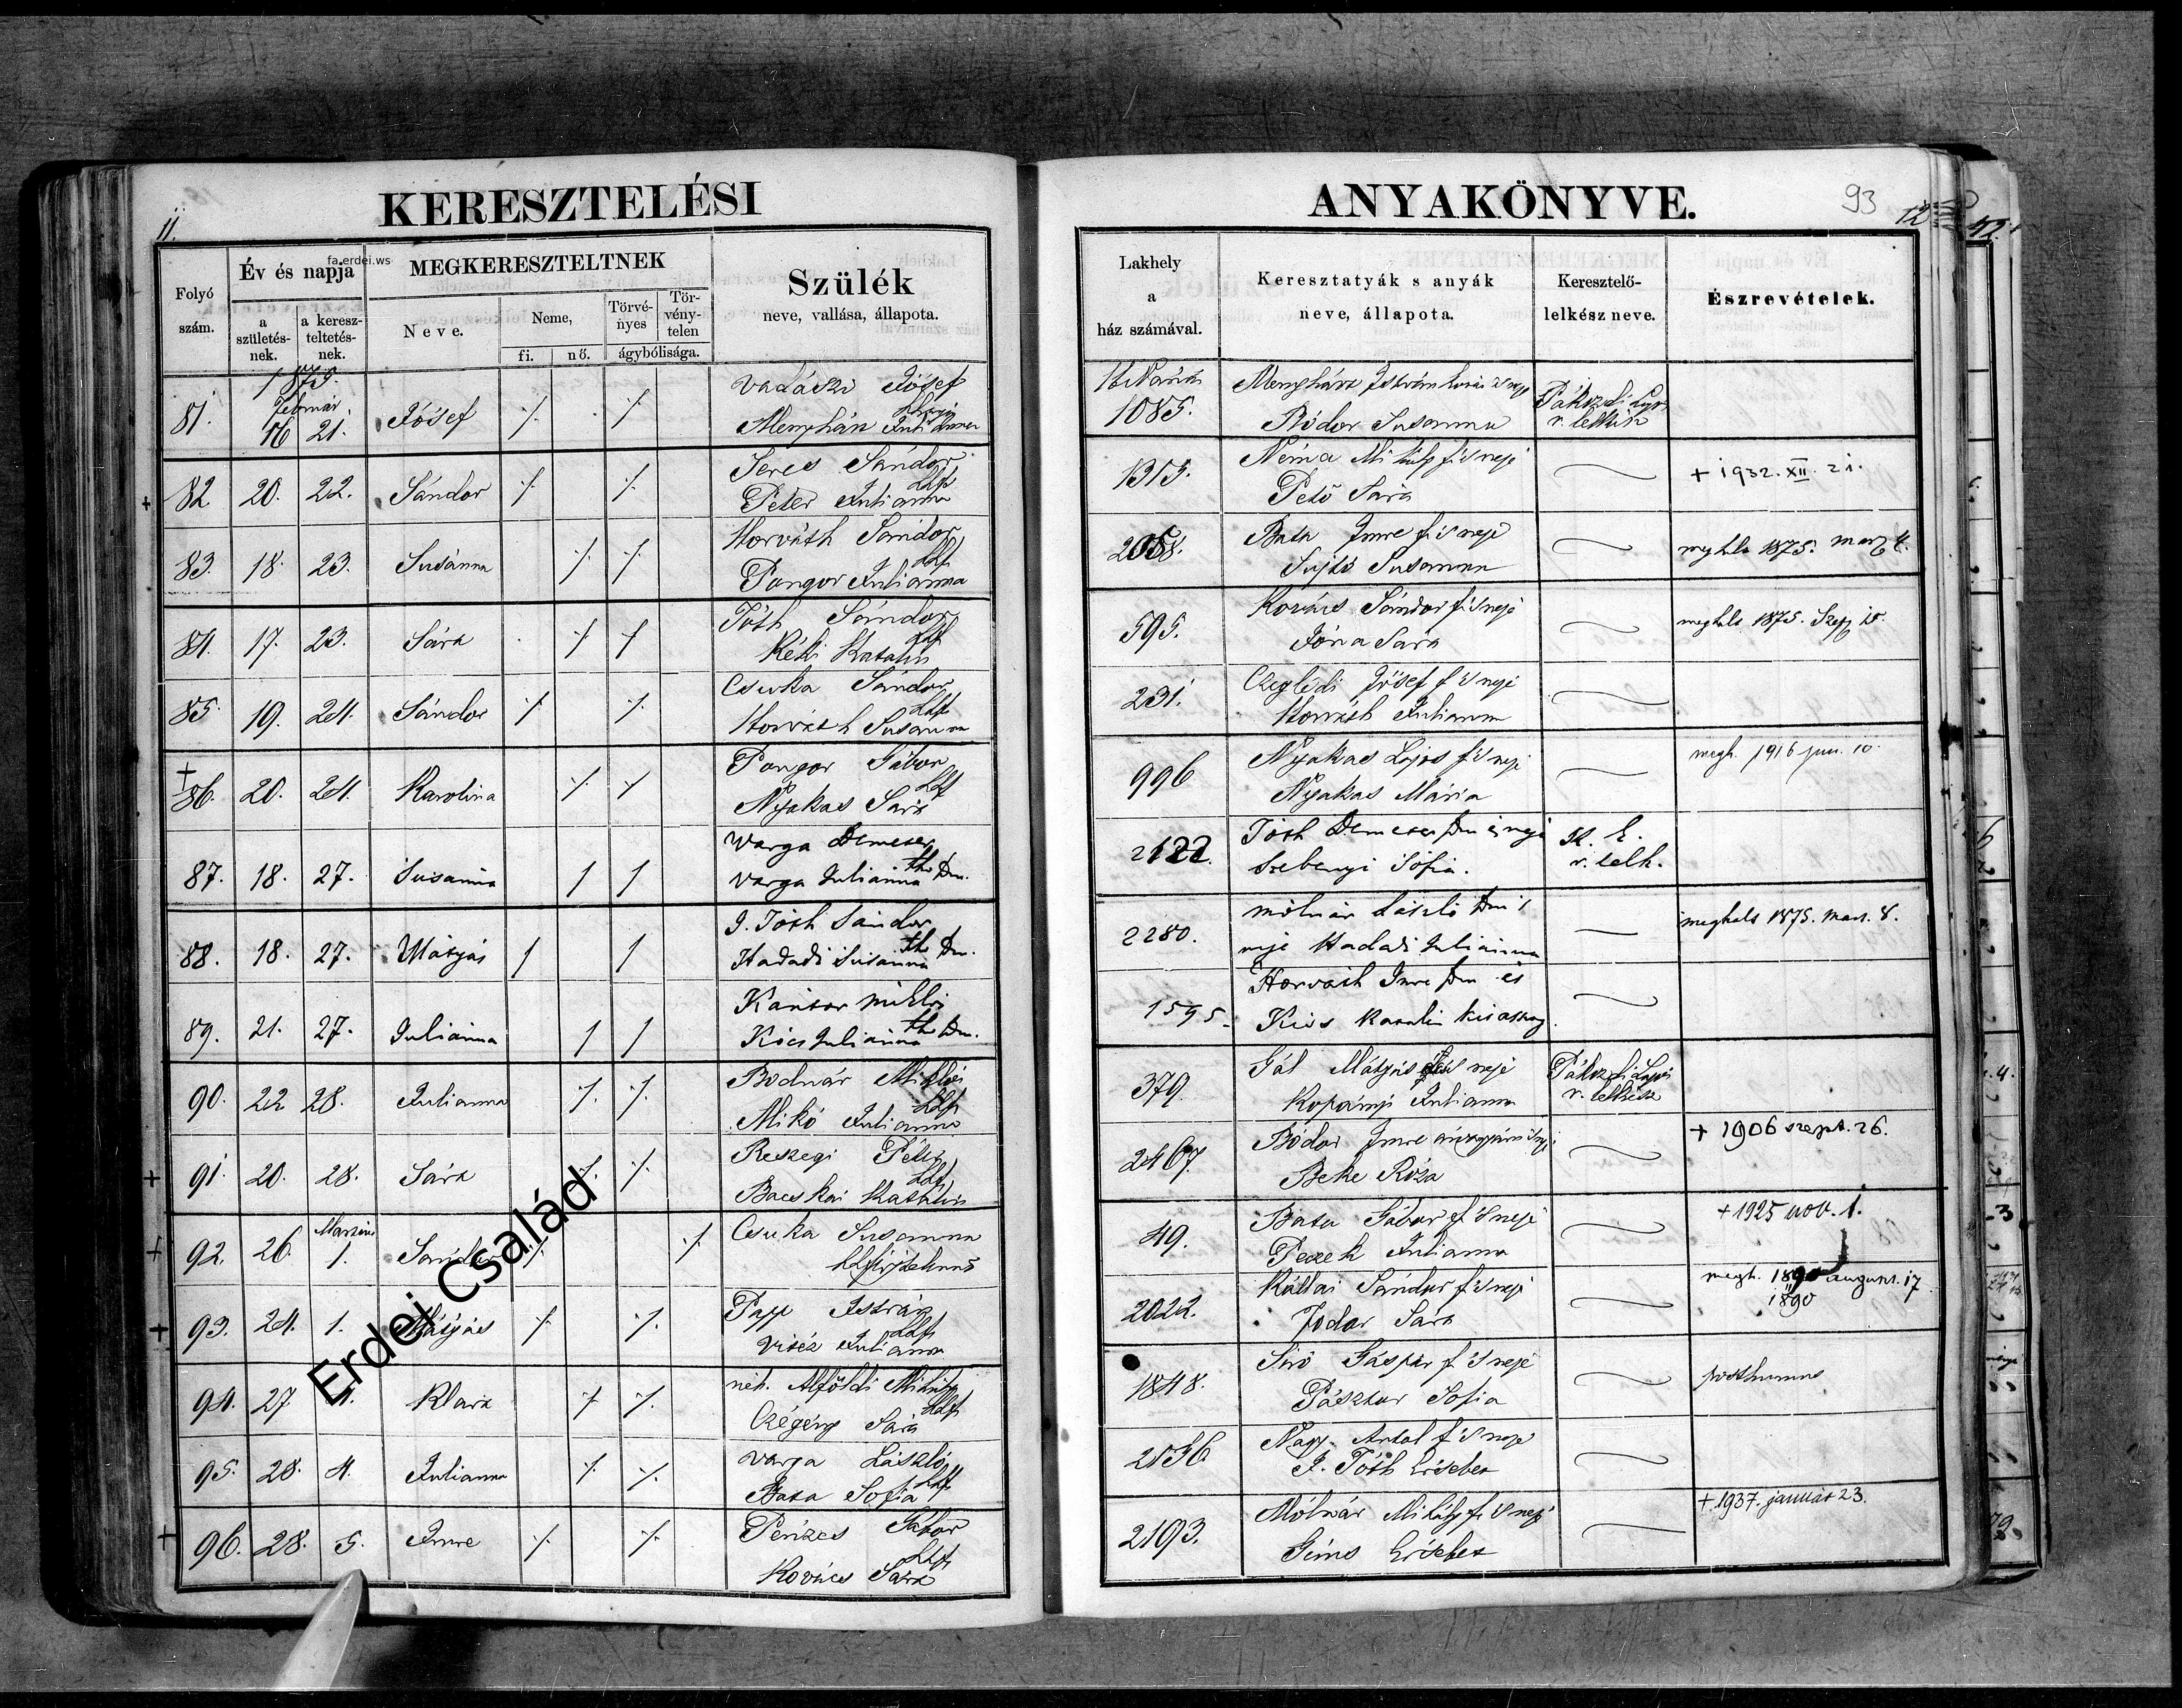 KERESZTELÉSI
ANYAKÖNYVE.
93
11.
12
fa.erdei.ws
Folyó szám.
Év és napja
a születés-nek.
a keresz-teltetés-nek.
MEGKERESZTELTNEK
Neve.
Neme,
fi.
nő.
Törvé-nyes
Tör-vény-telen
ágybólisága.
Szülék
neve, vallása, állapota.
Lakhely
a
ház számával.
Keresztatyák s anyák
neve, állapota.
Keresztelő-
lelkész neve.
Észrevételek.
1875.
Február
81. 16 21. József ⁒ ⁒ Vadászi József
Julianna
1085. Menyhárt István
Bódor Susanna
r. lelkész
82 20. 22. Sándor ⁒ ⁒ Seres Sándor
Péter Julianna
1315. Néma Mihály f. 's neje
Pető Sára
+ 1932. XII. 21.
83. 18. 23. Susánna ⁒ ⁒ Horváth Sándor
Pongor Julianna
Bata Imre f. 's neje
Sujtó Susanna
1875.
84. 17. 23. Sára ⁒ ⁒ Tóth Sándor
Réti Katalin
595. Kovács Sándor f. 's neje
Jóna Sára
meghalt 1875. Szep 10.
85. 19. 24. Sándor ⁒ ⁒ Csuka Sándor
Horváth Susanna
231. Czeglédi József f. 's neje
Horváth Julianna
+
86. 20. 24. Karolina ⁒ ⁒ Pongor Gábor
Nyakas Sára
996 Nyakas Lajos f. 's neje
Nyakas Mária
megh. 1916 jun. 10.
87. 18. 27. Susanna 1 1 Varga Demeter
Varga Julianna
2122. Tóth Demeter
Szebenyi Sófia.
r. lelk.
88. 18. 27. Mátyás 1 1 J. Tóth Sándor
Hadadi Susanna
2280. Molnár László
neje Hadadi Julianna
meghalt 1875. mart. 8.
89. 21. 27. Julianna 1 1 Kántor Miklós
Julianna
1595. Horváth Imre és
Kiss Katalin
90. 22 28. Julianna ⁒ ⁒ Bodnár Miklós
Mikó Julianna
379. Gál Mátyás 's neje
Kopányi Julianna
r. lelkész
91. 20. 28. Sára ⁒ ⁒ Reszegi Péter
Bacskai Katalin
2467. Bódor Imre
Beke Róza
+ 1906 szept. 26.
Martius
92. 26. 1. Sándor ⁒ ⁒ Csuka Susanna
49. Bata Gábor f. 's neje
Julianna
+ 1925 nov. 1.
93. 24. 1. Mátyás ⁒ ⁒ Papp István
Vitéz Julianna
2022. Kállai Sándor f. 's neje
Fodor Sára
megh. 1890 august. 17
1890
94. 27. 4. Klára ⁒ ⁒ néh. Alföldi Mihály
Czégény Sára
1848. Siró Gáspár f. 's neje
Pásztor Sofia
posthumus
95. 28. 4. Julianna ⁒ ⁒ Varga László
Bata Sofia
2536 Nagy Antal f. 's neje
J. Tóth Ersébet
96. 28. 5. Imre ⁒ ⁒ Penzes Gábor
Kovács Sára
2193. Mólnár Mihály f. 's neje
Géms Ersébet
+. 1937. január 23.
Erdei Család